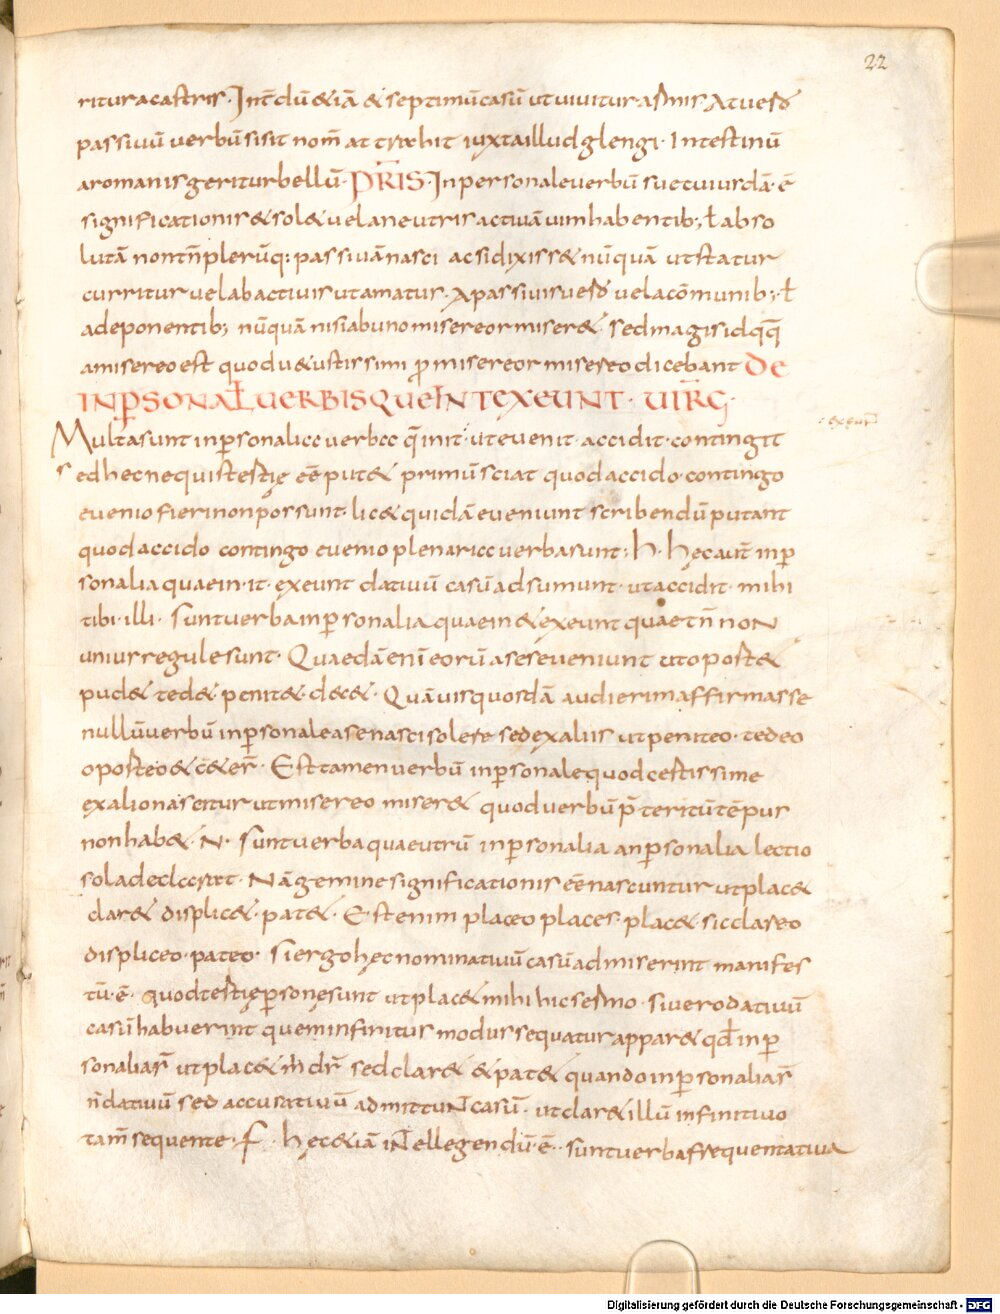 22
ritur a castris. Int̄ dū & iā & septimū casū ut uiuitur armis. At uero
passiuū uerbū si sit nom̄ attrahit iuxta illud glengi. Intestinū
a romanis geritur bellū. PR̄IS. Inpersonale uerbū suę cuiusdā ē
significationis & sol& uel a neutris actiuā uim habentib; ł abso
lutā non tn̄ plerūq: passiuā nasci ac si dixiss& nūquā ut statur
curritur uel ab actiuis ut amatur. A passiuis uero uel a cōmunib; ł
a deponentib; nūquā nisi ab uno misereor miser& sed magis id qq̄
a misereo est quod uetustissimi ꝓ misereor misereo dicebant DE
INꝐSONAŁ UERBIS QUE IN T EXEUNT. UIR̄G.
Multa sunt inꝑsonalia uerba q̄ in it. ut euenit. accidit. contingit
exeunt̄
Sed hec nequis tertię eē put& primū sciat quod accido. contingo
euenio fieri non possunt. lic& quidā eueniunt scribendū putant
quod accido contingo euenio plenaria uerba sunt. H. Hec aut̄ inꝑ
sonalia quae in .it. exeunt datiuū casū adsumunt. ut accidit. mihi
tibi. illi. Sunt uerba inꝑsonalia quae in & exeunt quae tn̄ non
unius regule sunt. Quaedā enī eorū a se seueniunt ut oport&
pud& ted& penit& dec&. Quāuis quosdā audierim affirmasse
nullū uerbū inꝑsonale a se nasci solere sed ex aliis ut peniteo. tedeo
oporteo & cet̄er. Est tamen uerbū inꝑsonale quod certissime
ex alio nascitur ut misereo miser& quod uerbū p̄teritū tēpus
non hab&. N. Sunt uerba quae utrū inꝑsonalia an ꝑsonalia lectio
sola declarat. Nā gemine significationis eē nascuntur ut plac&
clar& displic&. pat&. Est enim placeo places. plac&. sic clareo
displiceo. pateo. Si ergo hęc nominatiuū casū admiserint manifes
tū. ē. quod tertię ꝑsonę sunt ut plac& mihi hic sermo. Si uero datiuū
casū habuerint quem infinitus modus sequatur appar& qđ inꝑ
sonalia sr̄ ut plac& m̄ dr̄ sed clar& & pat& quando inꝑsonalia sr̄
n̄ datiuū sed accusatiuū admittunt casū. ut clar& illū infinitiuo
tam̄ sequente. F. Hec & iā intellegendū. ē. Sunt uerba frequentatiua
Digitalisierung gefördert durch die Deutsche Forschungsgemeinschaft - DFG